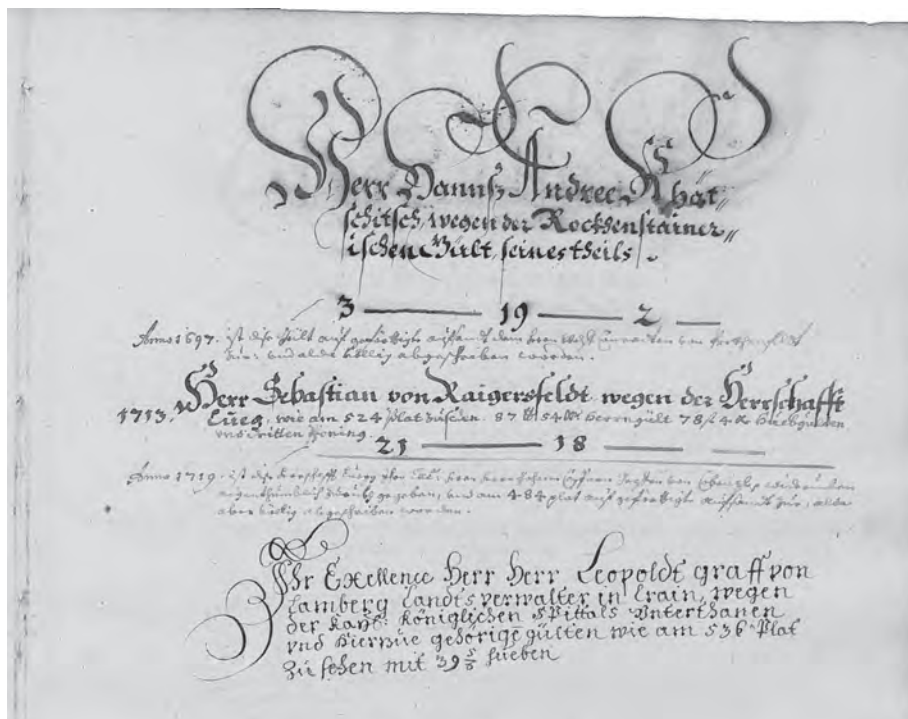 Herr Hannß Andree Rhät„
schitsch, wegen der Rockhenstainer„
ischen Gült, seines theils.
3 — 19 — 2 —
Anno 1697. ist dise Gilt auf gefertigte aufsandt dem herrn
und alda billig abgeschriben worden.
Herr Sebastian von Raigersfeldt, wegen der Herrschafft
1713. Lueg, wie am 524 plat zusehen. 87 54 Herrngült 78 4
vnd dritten Pfening.
21 — 18 — —
Anno 1719. ist dise herrschafft Lueg herrn von
aigenthumblich zurukh gegeben, und am 484 plat auf gefertigte aufsandt zue, alda
aber billig abgeschriben worden.
Ihr Excellence Herr Herr Leopoldt graff von
Lamberg Landtsverwalter in Crain, wegen
der Kayß: Königlichen Spittals Vnterthanen
vnd hierzue gehörige gülten wie am 536 Plat
zu sehen mit 39 5/6 hueben